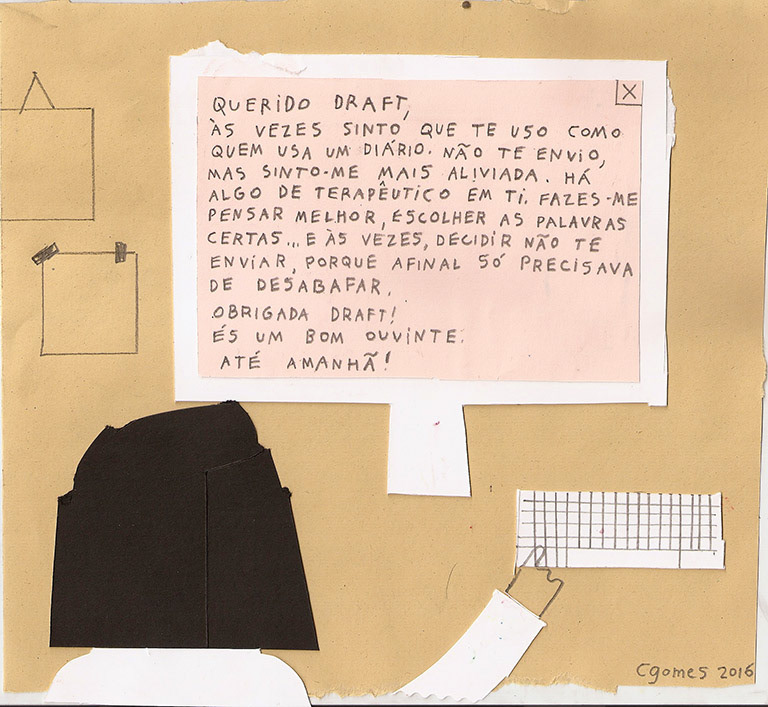 X
QUERIDO DRAFT,
ÀS VEZES SINTO QUE TE USO COMO
QUEM USA UM DIÁRIO. NÃO TE ENVIO,
MAS SINTO-ME MAIS ALIVIADA. HÁ
ALGO DE TERAPÊUTICO EM TI. FAZES-ME
PENSAR MELHOR, ESCOLHER AS PALAVRAS
CERTAS... E ÀS VEZES, DECIDIR NÃO TE
ENVIAR, PORQUE AFINAL SÓ PRECISAVA
DE DESABAFAR.
OBRIGADA DRAFT!
ÉS UM BOM OUVINTE.
ATÉ AMANHÃ!
Cgomes 2016